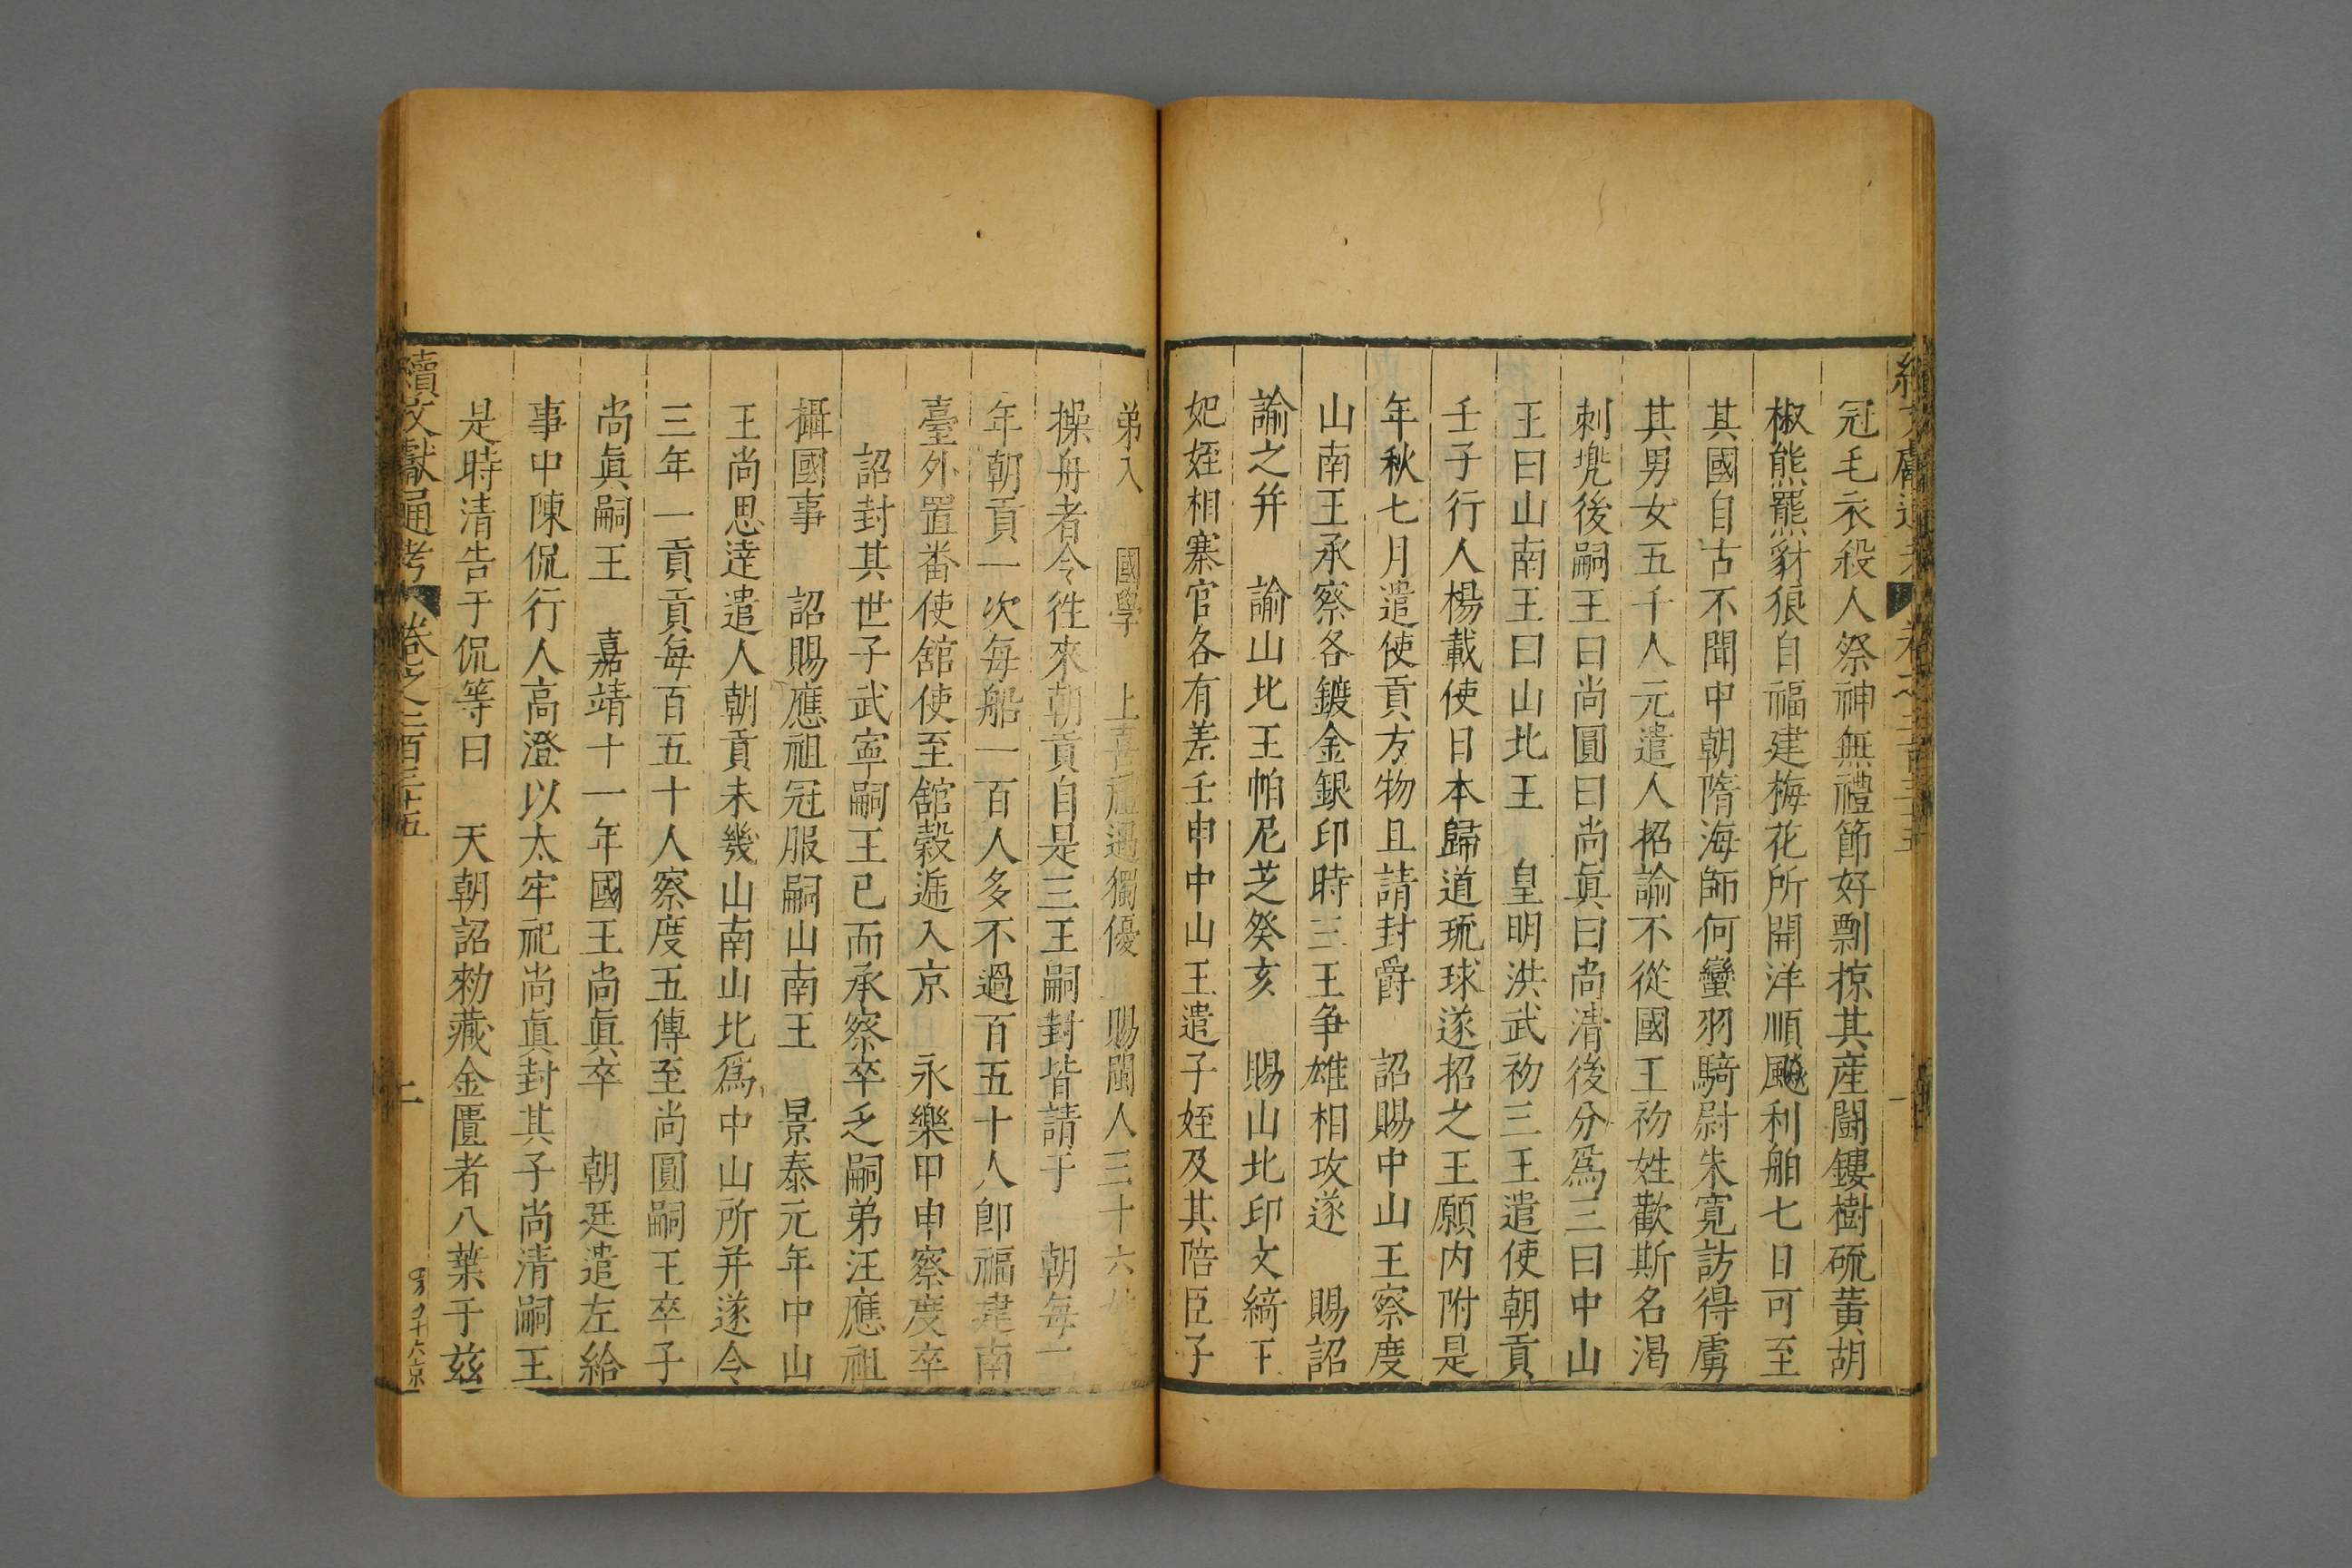 冠毛衣殺人祭神無禮節好剽掠其産鬪鏤樹硫黄胡
椒熊羆豺狼自福建梅花所開洋順飈利舶七日可至
其國自古不聞中朝隋海師何蠻羽騎尉朱寬訪得虜
其男女五千人元遣人招諭不從國王初姓歡斯名渇
刺兠後嗣王曰尚圓曰尚眞曰尚清後分爲三曰中山
王曰山南王曰山北王　皇明洪武初三王遣使朝貢
壬子行人楊載使日本歸道琉球遂招之王願内附是
年秋七月遣使貢方物且請封爵　詔賜中山王察度
山南王承察各鍍金銀印時三王争雄相攻遂　賜詔
諭之并　諭山北王帕尼芝癸亥　賜山北印文綺下
妃姪相寨官各有差壬申中山王遣子姪及其陪臣子
弟入　國學　上喜禮遇獨優　賜閩人三十六
操舟者令徃來朝貢自是三王嗣封皆請于　朝每二
年朝貢一次每船一百人多不過百五十人卽福建南
臺外置番使舘使至舘穀遞入京　永樂甲申察度卒
詔封其世子武寧嗣王已而承察卒乏嗣弟汪應祖
攝國事　詔賜應祖冠服嗣山南王　景泰元年中山
王尚思達遣人朝貢未幾山南山北爲中山所并遂令
三年一貢貢每百五十人察度五傳至尚圓嗣王卒子
尚眞嗣王　嘉靖十一年國王尚眞卒　朝廷遣左給
事中陳侃行人高澄以太牢祀尚眞封其子尚清嗣王
是時清告于侃等曰　天朝詔勑藏金匱者八葉于兹
續文獻通考　卷之二百三十五　二